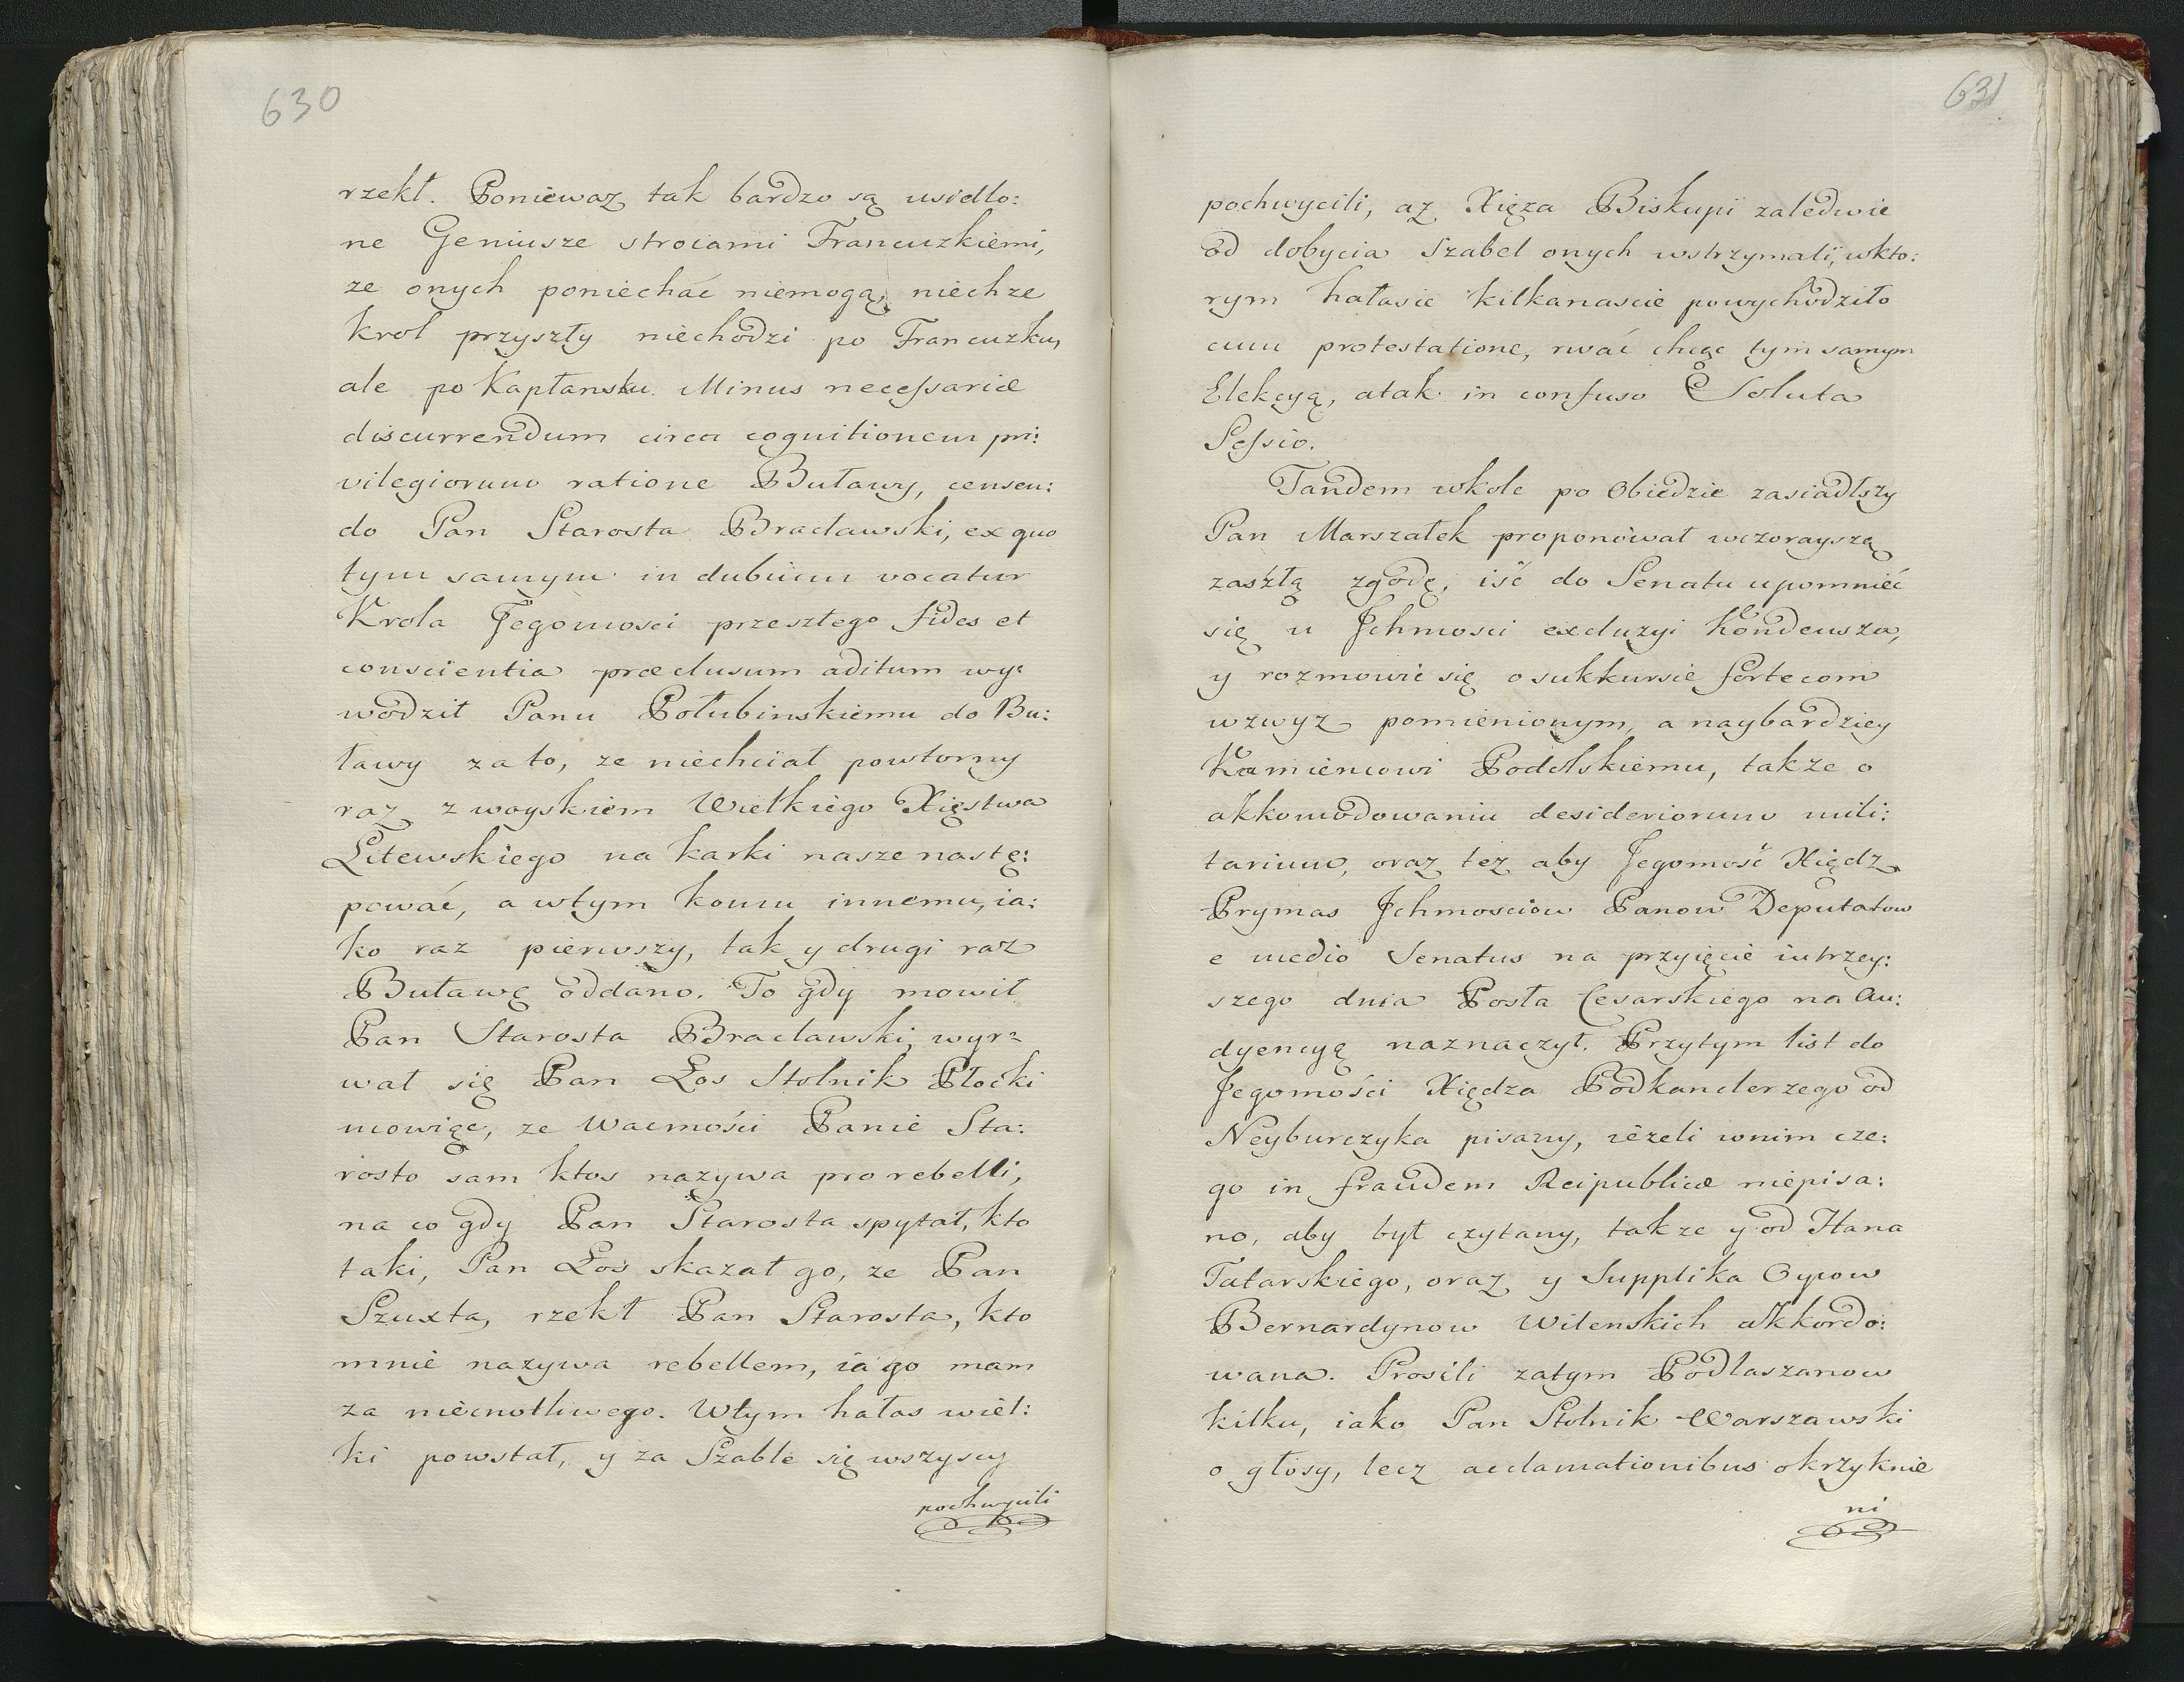 630
rzekł. Poniewaz tak bardzo są usidlo:
ne Geniusze stroiami Francuzkiemi,
ze onych poniechać niemogą, niechze
krol przyszły niechodzi po Francuzku,
ale po Kapłansku. Minus necessariæ
discurrendum circa cognitionem pri:
vilegiorum ratione Buławy, censen:
do Pan Starosta Bracławski, ex quo
tym samym in dubium vocatur
Krola Jegomosci przeszłego fides et
conscientia præclusum aditum wy:
wodził Panu Połubinskiemu do Bu:
ławy za to, ze niechciał powtorny
raz z woyskiem Wielkiego Xięstwa
Litewskiego na karki nasze nastę:
pować, a wtym komu innemu, ia:
ko raz pierwszy, tak y drugi raz
Buławę oddano. To gdy mowił
Pan Starosta Bracławski, wyr:
wał się Pan Łos Stolnik Płocki
mowiąc, ze Wacmości Panie Sta:
rosto sam ktos nazywa pro rebelli,
na co gdy Pan Starosta spytał, kto
taki, Pan Łoś skazał go, ze Pan
Szuxta, rzekł Pan Starosta, kto
mnie nazywa rebellem, ia go mam
za niecnotliwego. Wtym hałas wiel:
ki powstał, y za Szable się wszyscy
pochwycili
631
pochwycili, az Xięza Biskupi zaledwie
od dobycia Szabel onych wstrzymali, wkto:
rym hałasie kilkanascie powychodziło
cum protestatione, rwać chcąc tym samym
Elekcyą, atak in confuso Soluta
Sessio.
Tandem wkole po Obiedzie zasiadlszy
Pan Marszałek proponował wczorayszą
zaszłą zgodę, iść do Senatu upomnieć
się u Jchmosci excluzyi Kondeusza,
y rozmowic się o sukkursie fortecom
wzwyz pomienionym, a naybardziey
Kamiencowi Podolskiemu, takze o
akkomodowaniu desideriorum mili:
tarium, oraz tez aby Jegomość Xiądz
Prymas Jchmosciow Panow Deputatow
e medio Senatus na przyięcie iutrzey:
szego dnia Posła Cesarskiego na Au:
dyencyą naznaczył. Przytym list do
Jegomości Xiędza Podkanclerzego od
Neyburczyka pisany, iezeli wnim cze:
go in fraudem Reipublicæ niepisa:
no, aby był czytany, takze y od Hana
Tatarskiego, oraz y Supplika Oycow
Bernardynow Wilenskich akkordo:
wana. Prosili zatym Podlaszanow
kilku, iako Pan Stolnik Warszawski
o głosy, lecz acclamationibus okrzyknie
ni